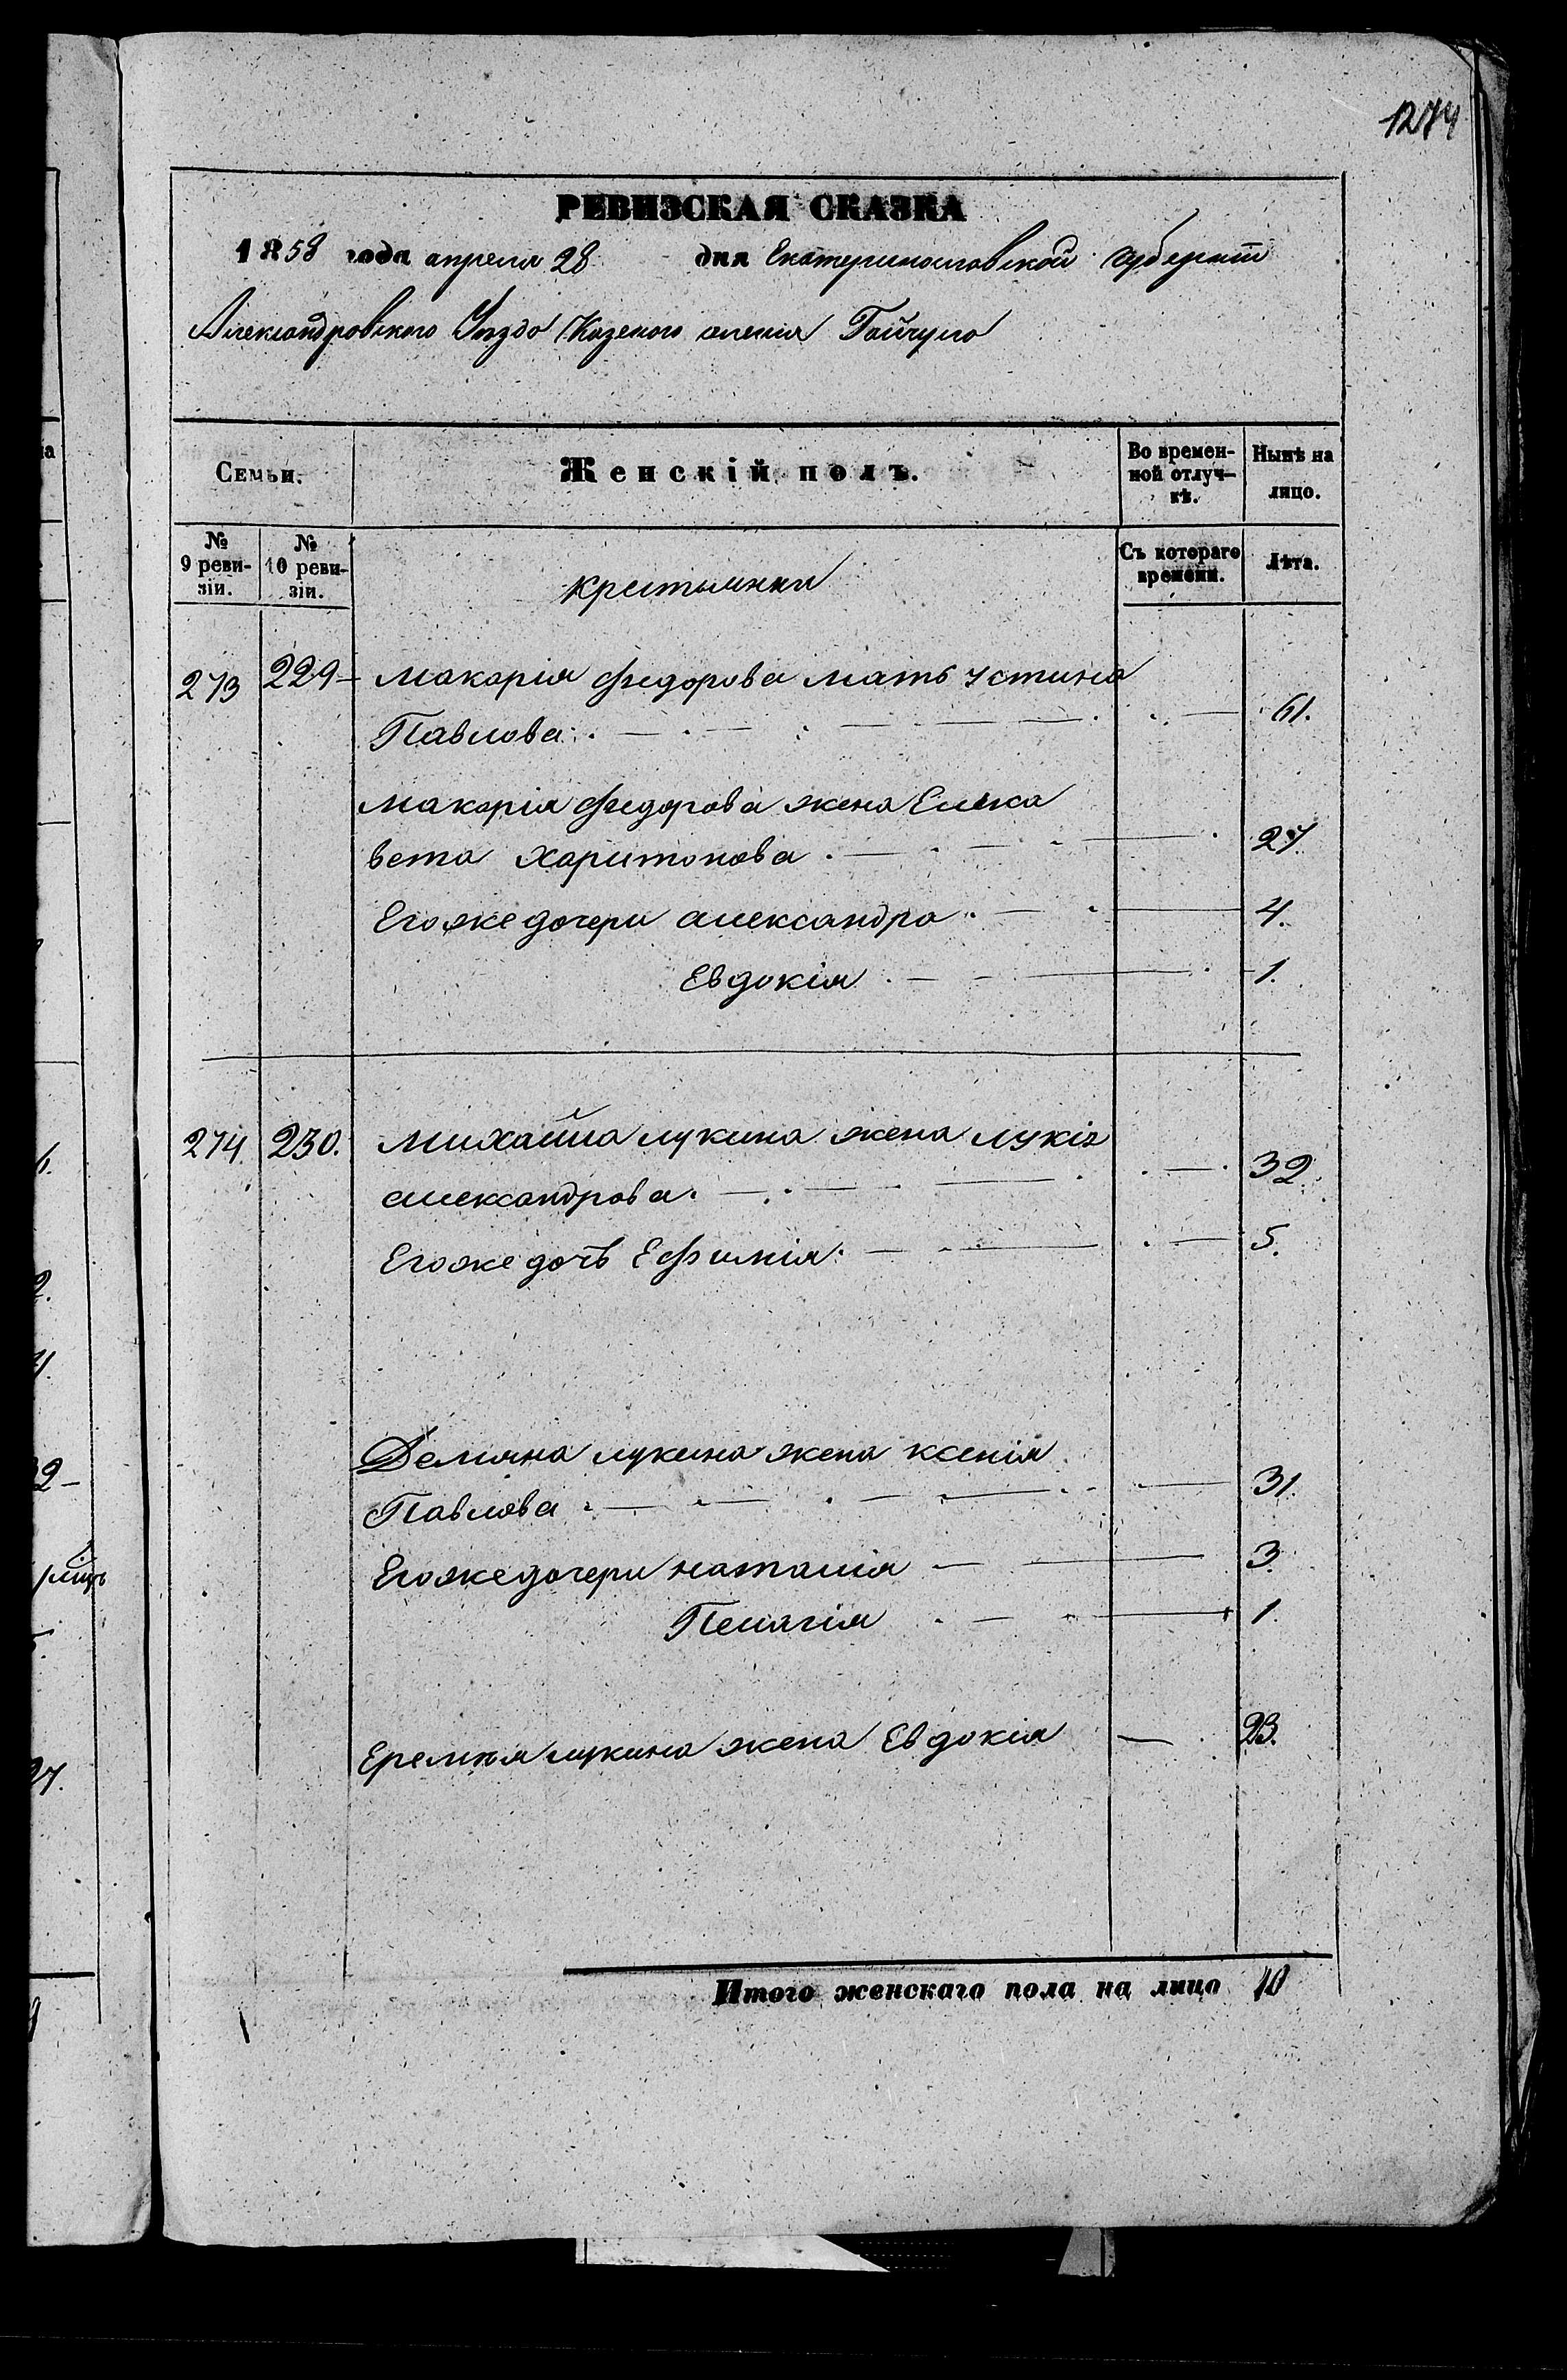 1274
РЕВИЗСКАЯ СКАЗКА
1858 года апреля 28 дня Екатеринославской губернии
Александровского Уезда Казеного селения Гайчула
Семьи.
Женскій полъ.
Во времен-
ной отлуч-
кѣ.
Нынѣ на
лицо.
№
9 реви-
зіи.
№
10 реви-
зіи.
крестьянки
Съ котораго
времени.
Лѣта.
273 229 Макарія Федорова мать Устина
Павлова 61.
Макарія Федорова жена Елиса
вета Харитонова 27
Егоже дочери александра 4.
Евдокія 1.
274 230. Михайла лукина жена лукія
александрова 32
Егоже дочь Ефимія 5.
Демяна лукина жена ксенія
Павлова 31.
Егоже дочери наталія 3.
Пелагія 1.
Еремѣя лукина жена Евдокія 23.
Итого женскаго пола на лицо 10